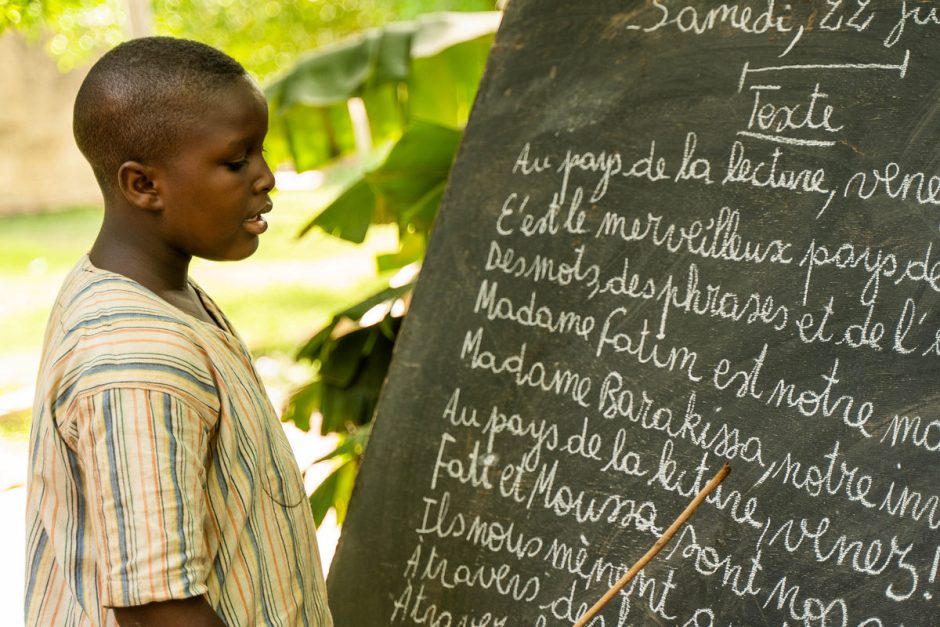 Samedi, 22
Texte
Au pays de la lecture,
C'est le merveilleux pays de
Des mots, des phrases et de l'
Madame Fatim est notre
Madame Barakissa, notre
Au pays de la lecture, venez!
Fatt et Moussa sont
Ils nous mènent
Atravers